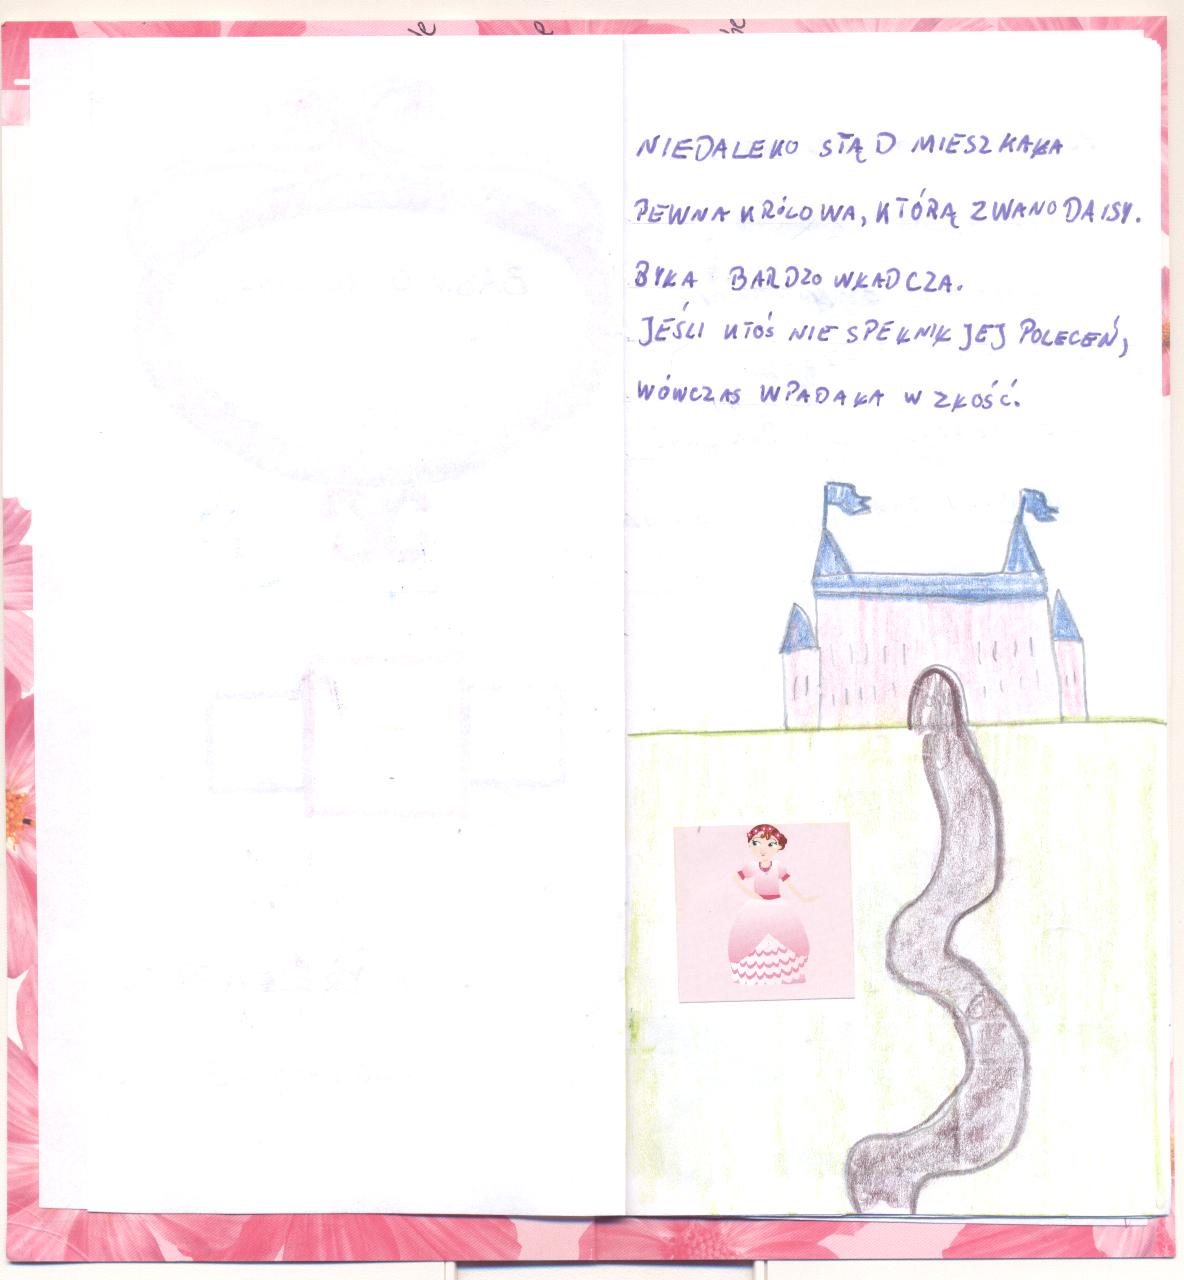 NIEDALEKO STĄD MIESZKAŁA
PEWNA KRÓLOWA, KTÓRĄ ZWANO DAISY.
BYŁA BARDZO WŁADCZA.
JEŚLI KTOŚ NIE SPEŁNIŁ JEJ POLECEŃ,
WÓWCZAS WPADAŁA W ZŁOŚĆ.